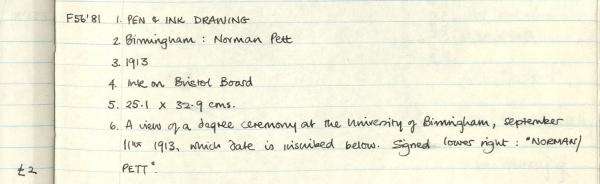 F56'81 1. PEN & INK DRAWING
2. Birmingham : Norman Pett
3. 1913
4. Ink on Bristol Board
5. 25.1 x 32.9 cms.
6. A view of a degree ceremony at the University of Birmingham, september
11th 1913, which date is inscribed below. Signed lower right : "NORMAN/
£2 PETT".